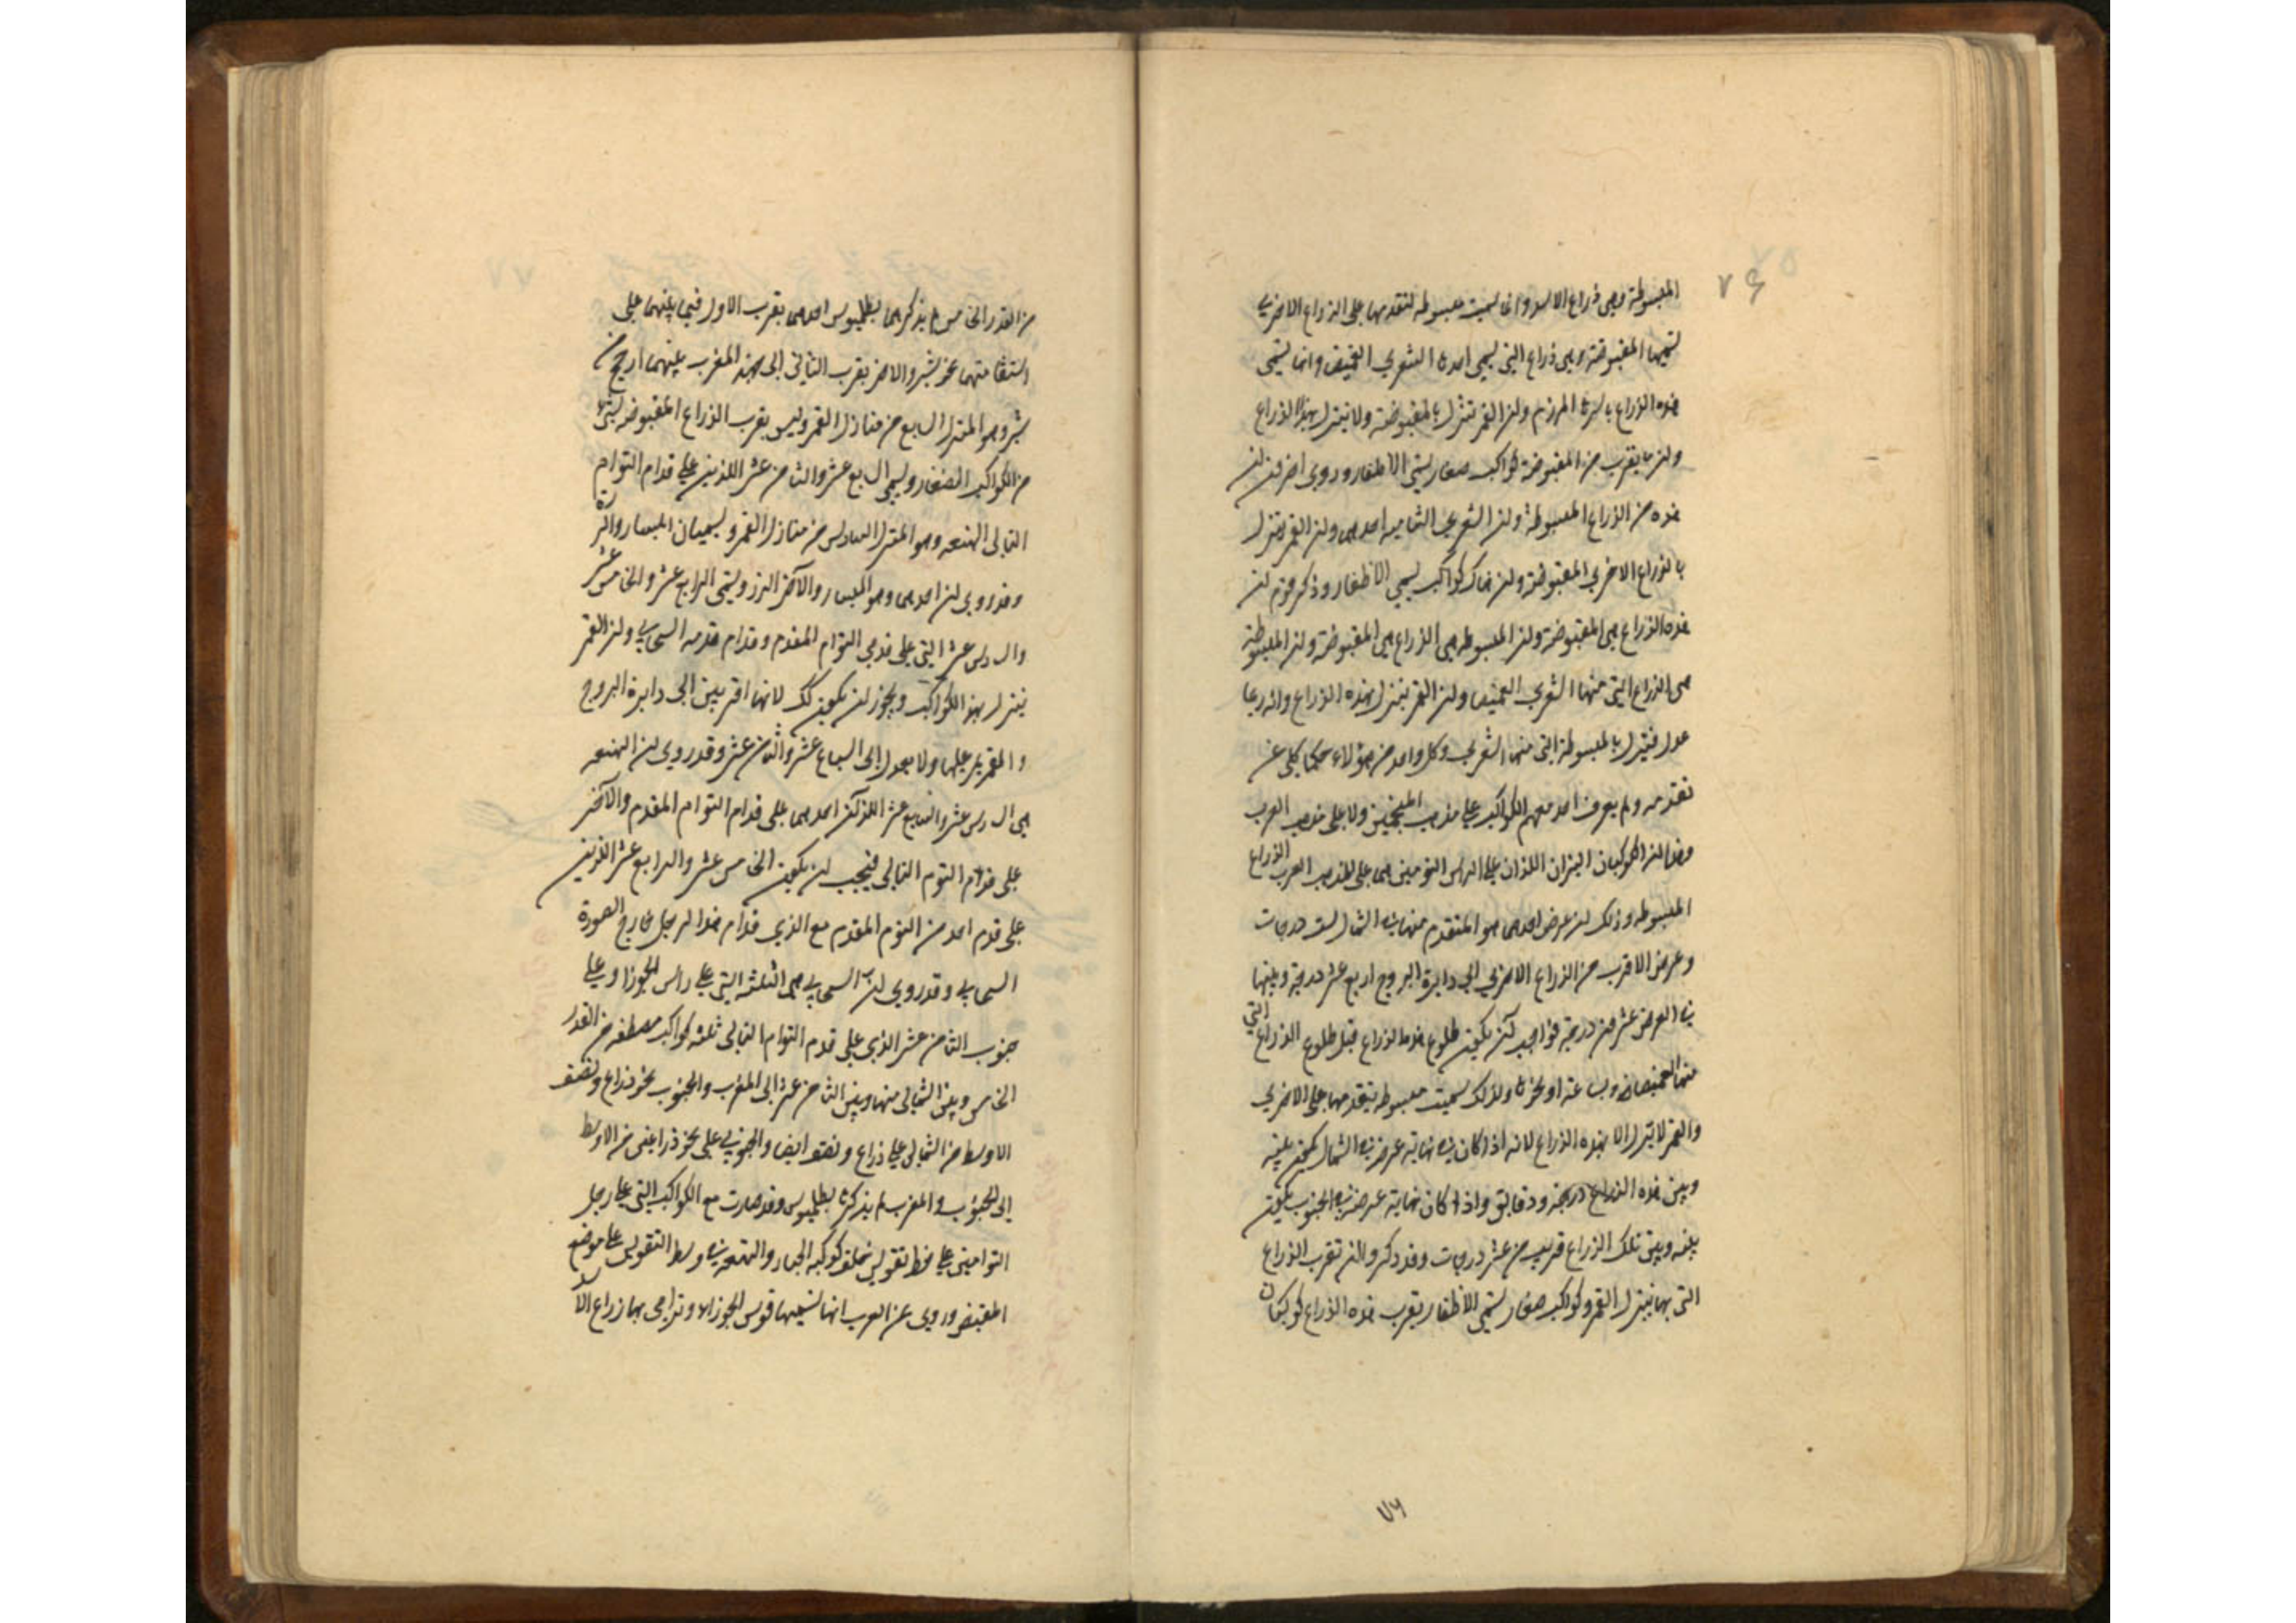 ٧۶
المبسوطة وهى ذراع الاسد وانما سميت مبسوطه لتقدمها على الذراع الاخرى
تسميها المقبوضة وهى ذراع التى يسمى احدها الشعرى الغميضا وانما يسمى
هذه الذراع باسرها المرزم ولن القمر تنزل بالمقبوضة ولا ينزل بهذا الذراع
ولن ما يقرب من المقبوضة كواكب صغار يسمى الاظفار وروى اخرون لن
هذه من الذراع المبسوطة ولن الشعرى الشاميه احدهما ولن القمر ينزل
بالذراع الاخرى المقبوضة ولن هناك كواكب يسمى الاظفار وذكر قوم لن
هذه الذراع هى المقبوضة ولن المبسوطه هى الذراع هى المقبوضة ولن المبسوطة
هى الذراع التى منها الشعرى الغميضا ولن القمر ينزل بهذه الذراع وانه ربما
عدل فينزل بالمبسوطة التى منها الشعرى وكل واحد من هؤلاء حكما كلى عن
تقدمه ولم يعرف احد منهم الكواكب على مذهب المنجمين ولا على مذهب العرب
وهذا لن الكوكبان النيران اللذان على الراس التومين هما على المذهب العرب الذراع
المبسوطه وذلك لن عرض احدهما هو المتقدم منها فى الشمال ست درجات
وعرض الاقرب من الذراع الاخرى الى دايرة البروج اربع عشر درجة وبينها
فى العرض عشرون درجة فواجب لن يكون طلوع هذه الذراع قبل طلوع الذراع التى
منها الغميضا بساعة او نحوها ولذلك سميت مبسوطه بتقدمها على الاخرى
والقمر لا ينزل الا بهذه الذراع لانه اذا كان فى نهاية عرضه فى الشمال يكون بينه
وبين هذه الذراع درجة ودقايق واذا كان نهاية عرضه فى الجنوب يكون
بينه وبين تلك الذراع قريب من عشر درجات وقد ذكروا لن تقرب الذراع
التى بها ينزل القمر وكواكب صغار يسمى الاظفار بقرب هذه الذراع كوكبان
٧٦
من القدر الخامس لم يذكرهما بطلميوس احدهما بقرب الاول فيما بينهما على
استقامتهما نحو شبر والاخر بقرب الثانى الى جهة المغرب بينهما ارجح من
شبر وهو المنزل السابع من منازل القمر وليس بقرب الذراع المقبوضه شئ
من الكواكب الصغار ويسمى السابع عشر والثامن عشر اللذين على قدام التوام
التالى الهنعه وهو المنزل السادس من منازل القمر ويسميان الميسان والزر
وقد روى لن احدهما وهو الميسان والآخر الزر ويسمى الرابع عشر والخامس عشر
والسادس عشر التى على قدمى التوام المقدم وقدام قدمه السحابى ولن القمر
ينزل بهذه الكواكب ويجوز لن يكون كك لانها اقرب من الى دايرة البروج
والقمر يمر عليها ولا يعدل الى السابع عشر والثامن عشر وقد روى لن الهنعه
هى السادس عشر والسابع عشر اللذان احدهما على قدام التوام المقدم والآخر
على قدام التوم التالى فيجب لن يكون الخامس عشر والرابع عشر اللذين
على قدم احد من التوم المقدم مع الذى قدام هذا الرجل خارج الصورة
السحابى وقد روى لن السحابى هى الثلثه التى على راس الجوزا وعلى
جنوب الثامن عشر الذى على قدم التوام التالى ثلثه كواكب مصطفه من القدر
الخامس وبين الشمالى منها وبين الثامن عشر الى المغرب والجنوب نحو ذراع ونصف
الاوسط من الشمالى على ذراع ونصف ايضا والجنوبى على نحو ذراعين من الاوسط
الى الجنوب والمغرب لم يذكرها بطلميوس وقد صارت مع الكواكب التى على رجل
التوامين على خط تقويس خلف كوكبه الجبار والهنعه فى وسط التقويس على موضع
المقبض وروى عن العرب انها تسميها قوس الجوزاء وترامى بها ذراع الاسد